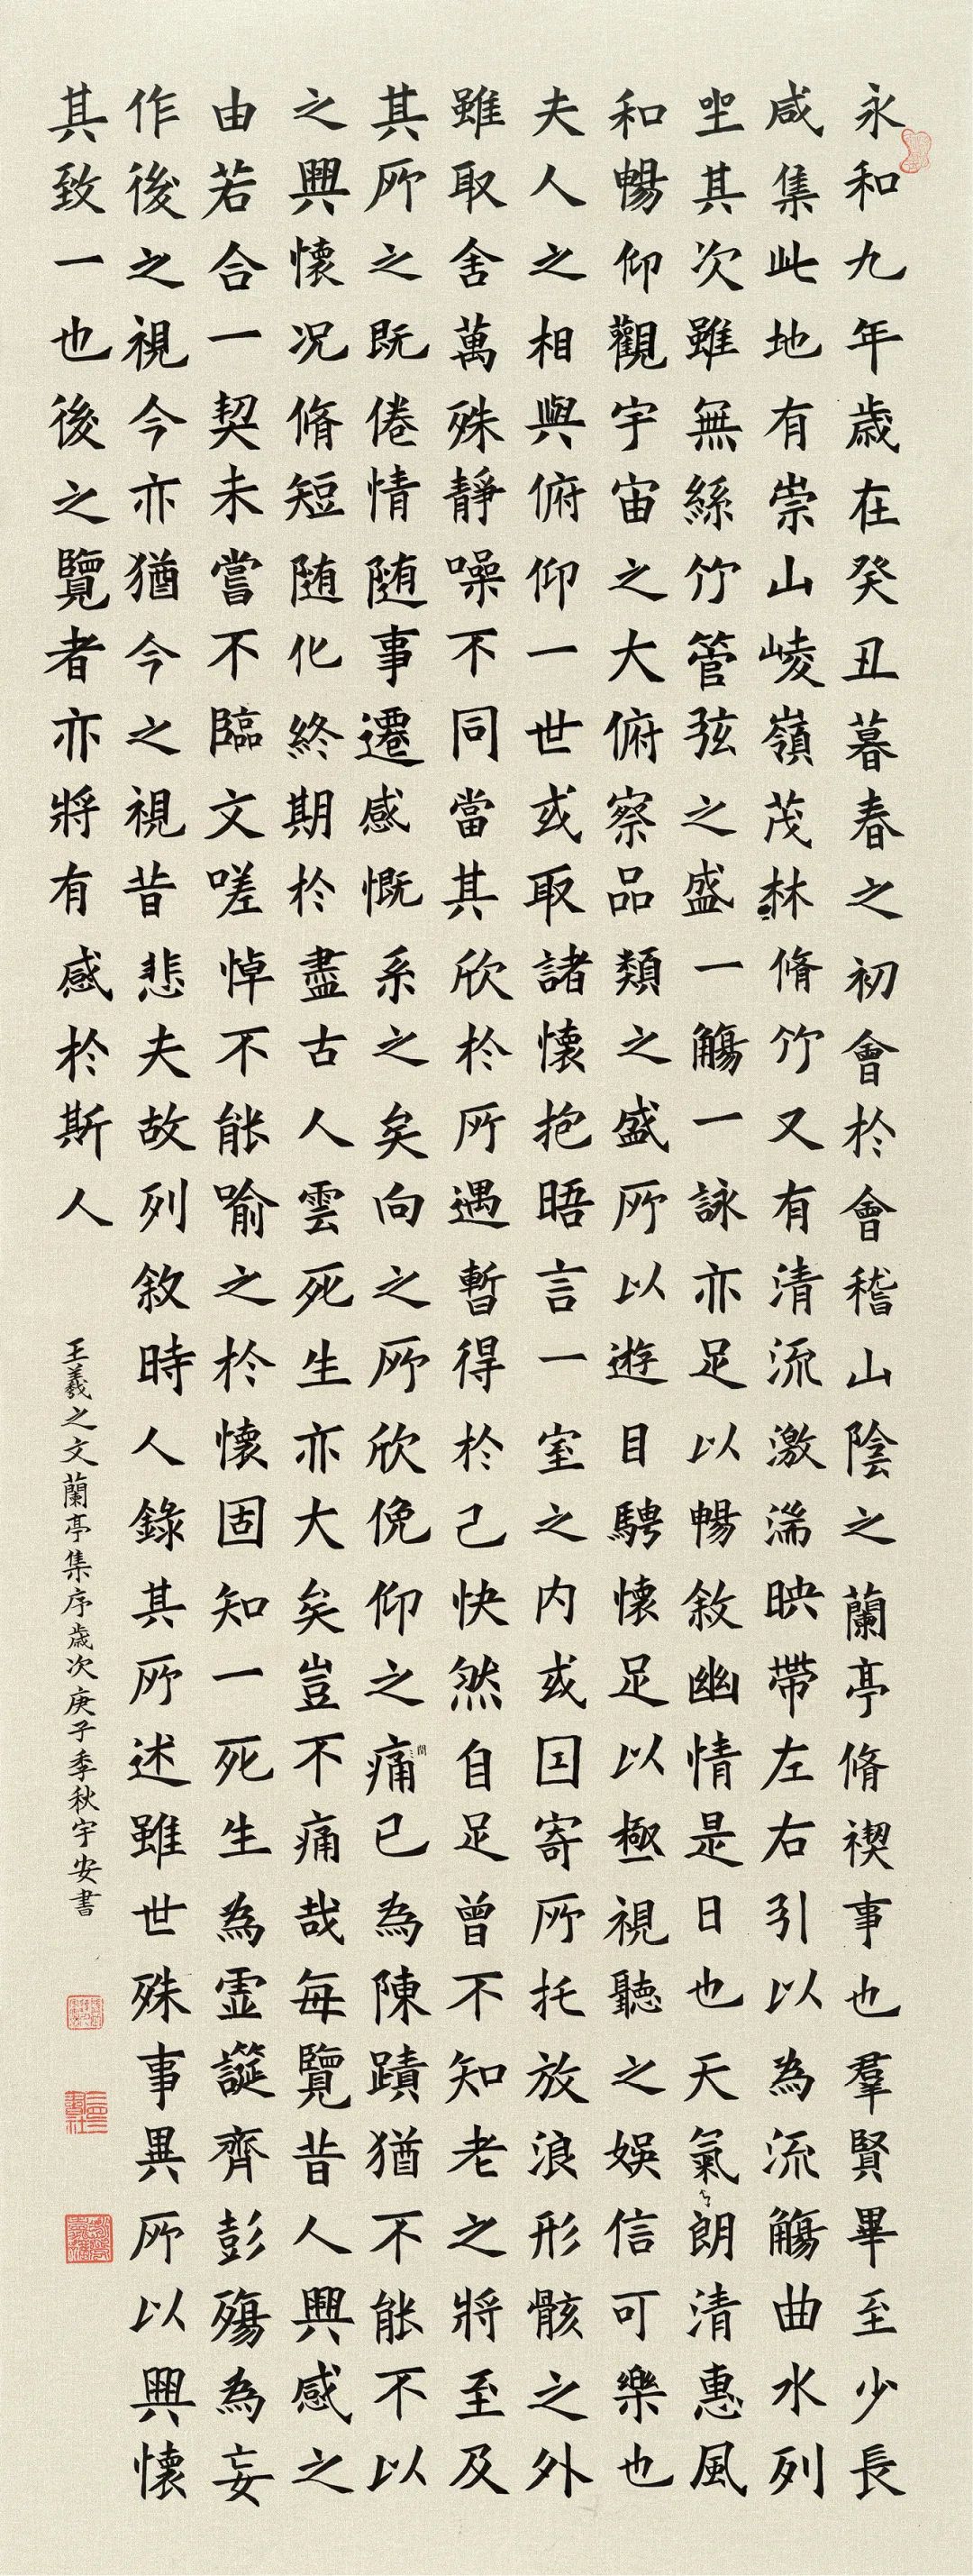 永和九年歲在癸丑暮春之初會於會稽山陰之蘭亭脩禊事也羣賢畢至少長
咸集此地有崇山崚嶺茂林脩竹又有清流激湍映帶左右引以為流觴曲水列
坐其次雖無絲竹管弦之盛一觴一詠亦足以暢敘幽情是日也天氣朗清惠風
和暢仰觀宇宙之大俯察品類之盛所以遊目騁懷足以極視聽之娛信可樂也
夫人之相與俯仰一世或取諸懷抱晤言一室之内或因寄所托放浪形骸之外
雖取舍萬殊靜噪不同當其欣於所遇暫得於己快然自足曾不知老之將至及
其所之既倦情随事遷感慨系之矣向之所欣俛仰之間痛已為陳蹟猶不能不以
之興懷况脩短随化終期於盡古人雲死生亦大矣豈不痛哉每覽昔人興感之
由若合一契未嘗不臨文嗟悼不能喻之於懷固知一死生為虛誕齊彭殤為妄
作後之視今亦猶今之視昔悲夫故列敘時人錄其所述雖世殊事異所以興懷
其致一也後之覽者亦將有感於斯人
王羲之文蘭亭集序歲次庚子季秋宇安書